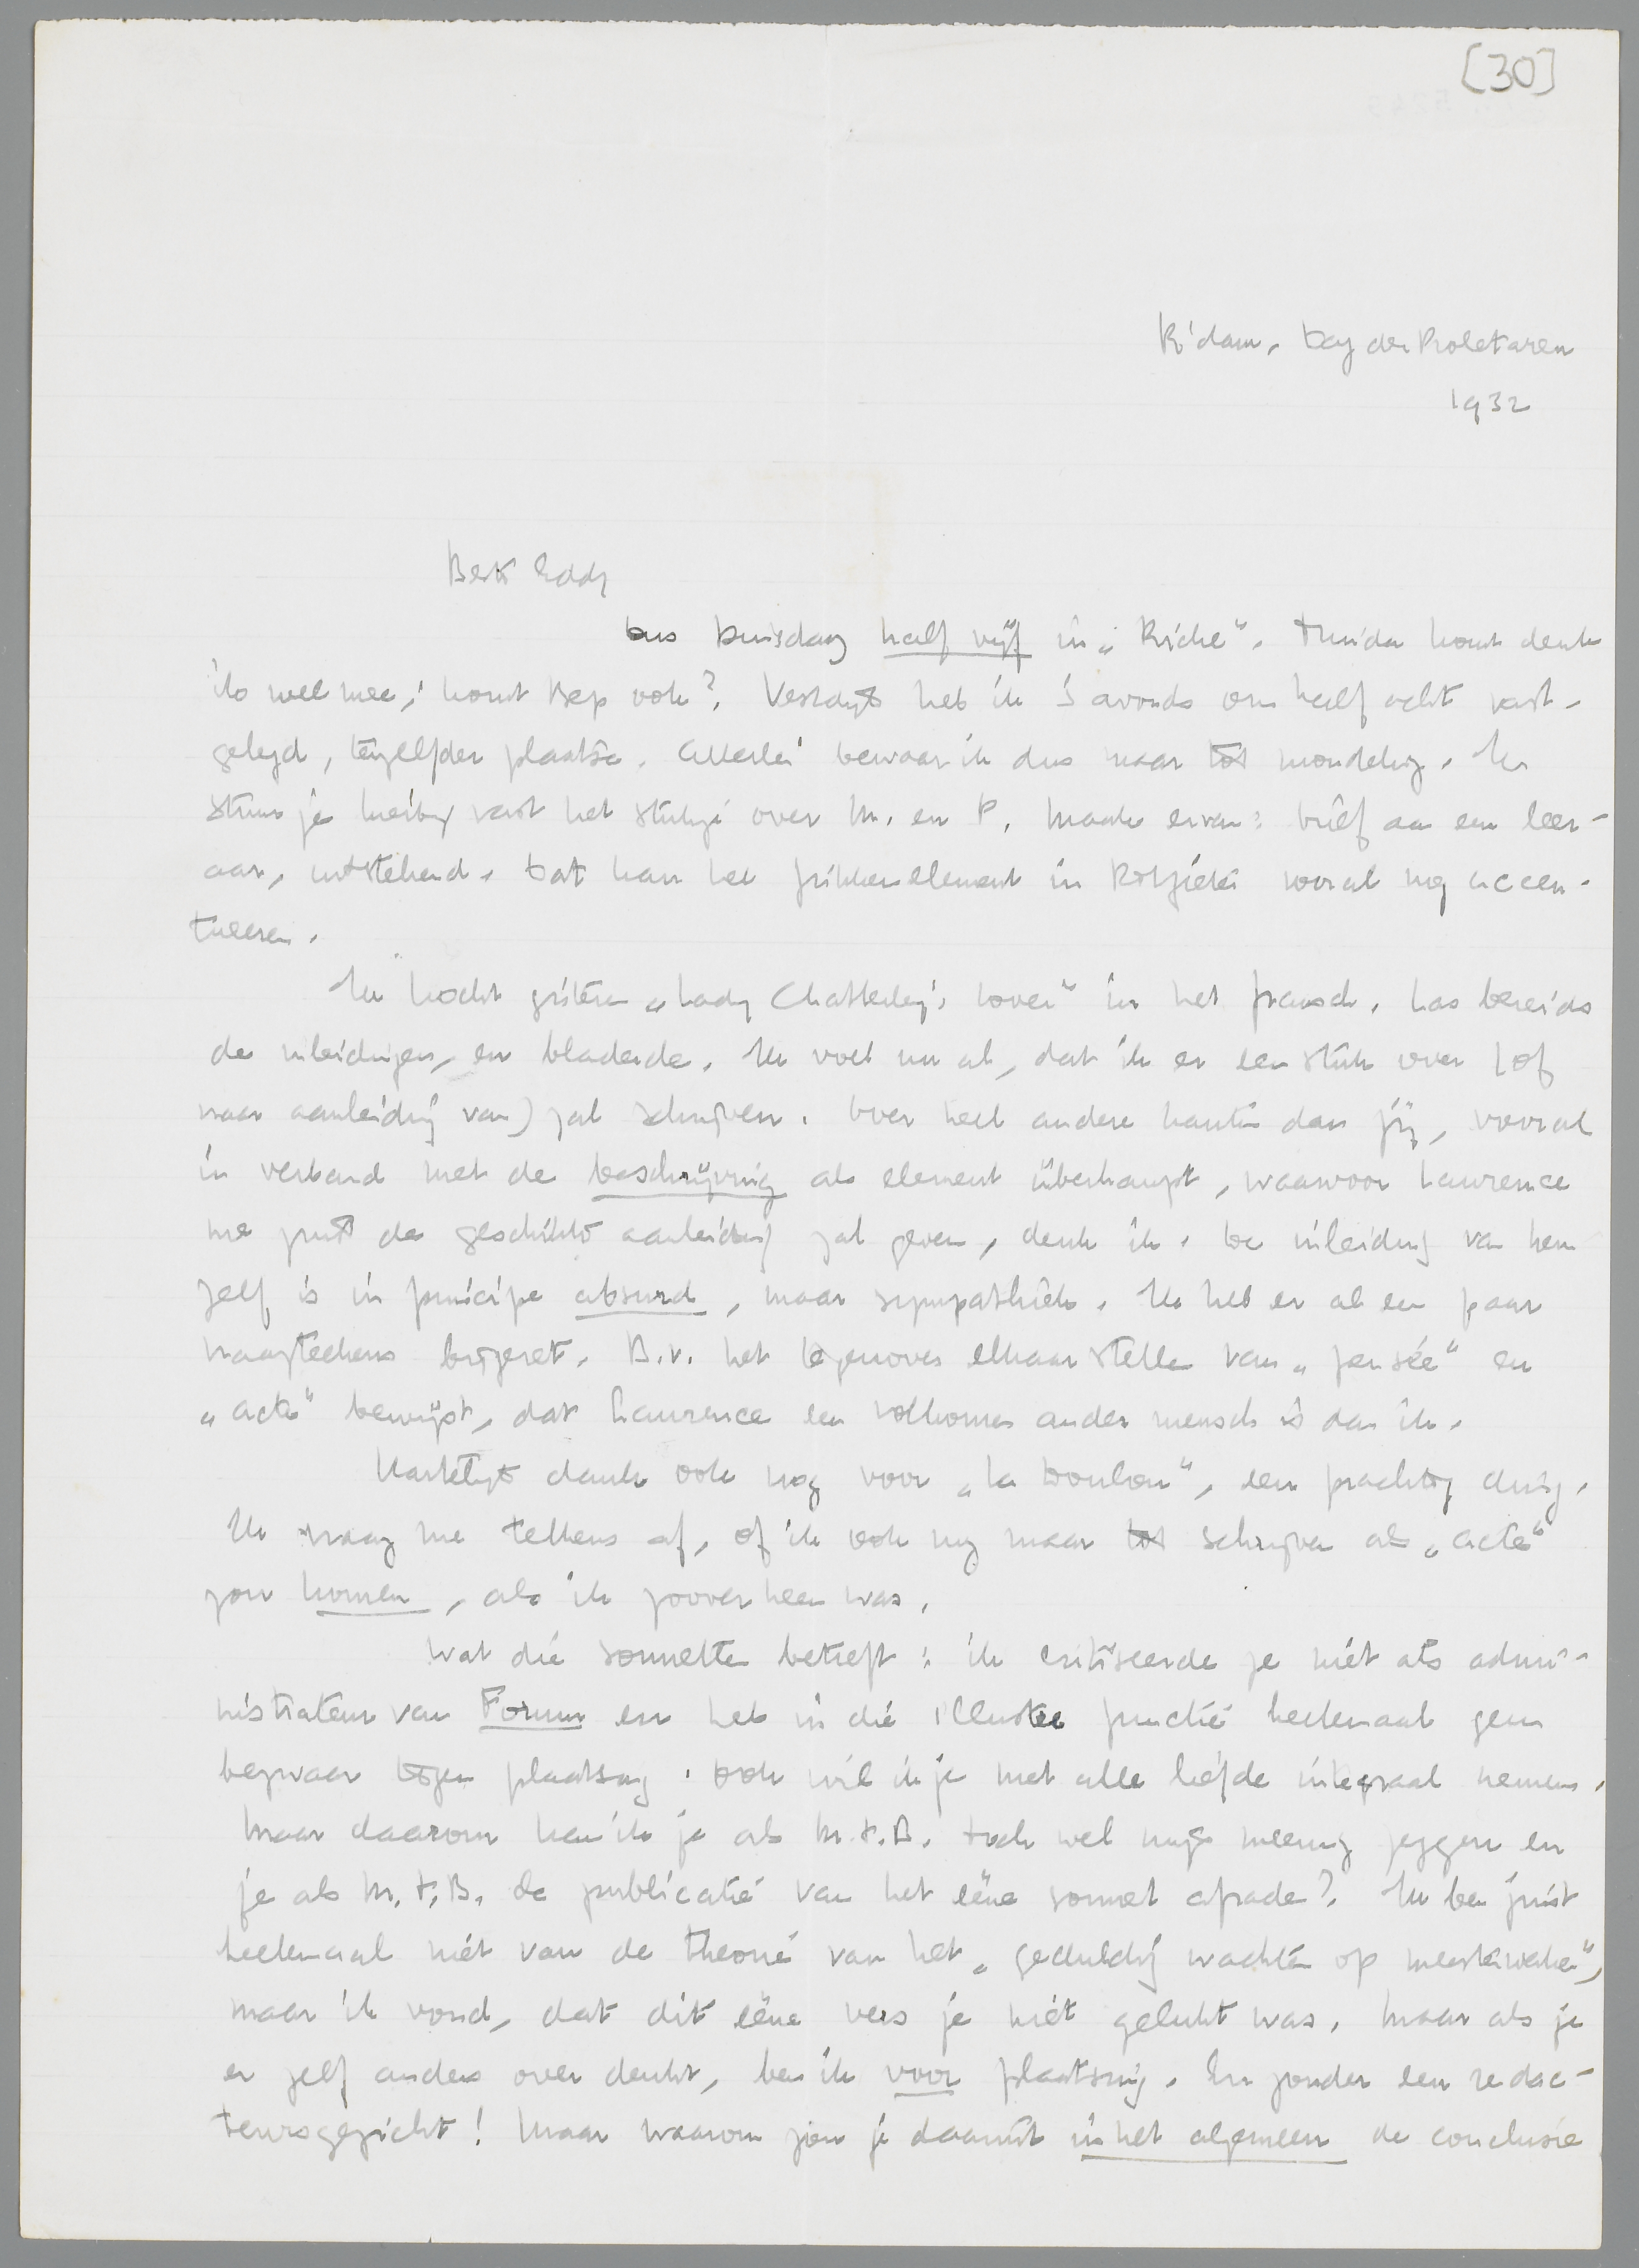 [30]
R'dam, Dag der Proletaren
1932
Beste Eddy
Dus Dinsdag half vijf in „Riche”. Truida komt denk
ik wel mee; komt Bep ook? Vestdijk heb ik 's avonds om half acht vast-
gelegd, tezelfder plaatse. Allerlei bewaar ik dus maar tot mondeling. Ik
stuur je hierbij vast het stukje over M. en P. Maak ervan: brief aan een leer-
aar, uitstekend. Dat kan het element in vooral nog accen-
tueeren.
Ik kocht gisteren „Lady Chatterley's Lover” in het fransch. Las bereids
de inleidingen, en bladerde. Ik voel nu al, dat ik er een stuk over (of
naar aanleiding van) zal schrijven. Over heel andere kanten dan jij, vooral
in verband met de beschrijving als element überhaupt, waarvoor Lawrence
me juist de geschikte aanleiding zal geven, denk ik. De inleiding van hem
zelf is in principe absurd, maar sympathiek. Ik heb er al een paar
vraagteekens bijgezet. B.v. het tegenover elkaar stellen van „pensée” en
„acte” bewijst, dat Lawrence een volkomen ander mensch is dan ik.
Hartelijk dank ook nog voor „Le Doulou”, een prachtig ding.
Ik vraag me telkens af, of ik ook nog maar tot schrijven als „acte”
zou komen, als ik zoover heen was.
Wat die sonnetten betreft: ik critiseerde je niet als admi-
nistrateur van Forum en heb in die illustre functie heelemaal geen
bezwaar tegen plaatsing. Ook wil ik je met alle liefde integraal nemen.
Maar daarom kan ik je als M.t.B. toch wel mijn meening zeggen en
je als M.t.B. de publicatie van het ééne sonnet afraden? Ik ben juist
heelemaal niet van de theorie van het „geduldig wachten op meesterwerken”,
maar ik vond, dat dit ééne vers je niet gelukt was. Maar als je
er zelf anders over denkt, ben ik voor plaatsing. En zonder een redac-
teursgezicht! Maar waarom zou je daaruit in het algemeen de conclusie